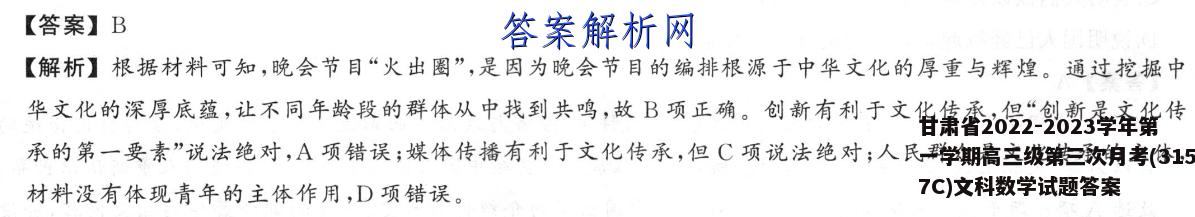 【答案】B
答案解析网
【解析】根据材料可知,晚会节目“火出圈”,是因为晚会节目的编排根源于中华文化的厚重与辉煌。通过挖掘中
华文化的深厚底蕴,让不同年龄段的群体从中找到共鸣,故 B 项正确。创新有利于文化传承,但“创新是文化传
承的第一要素”说法绝对,A 项错误;媒体传播有利于文化传承,但 C 项说法绝对;人民
材料没有体现青年的主体作用,D 项错误。
甘肃省2022-2023学年第
一学期高三级第三次月考(315
7C)文科数学试题答案